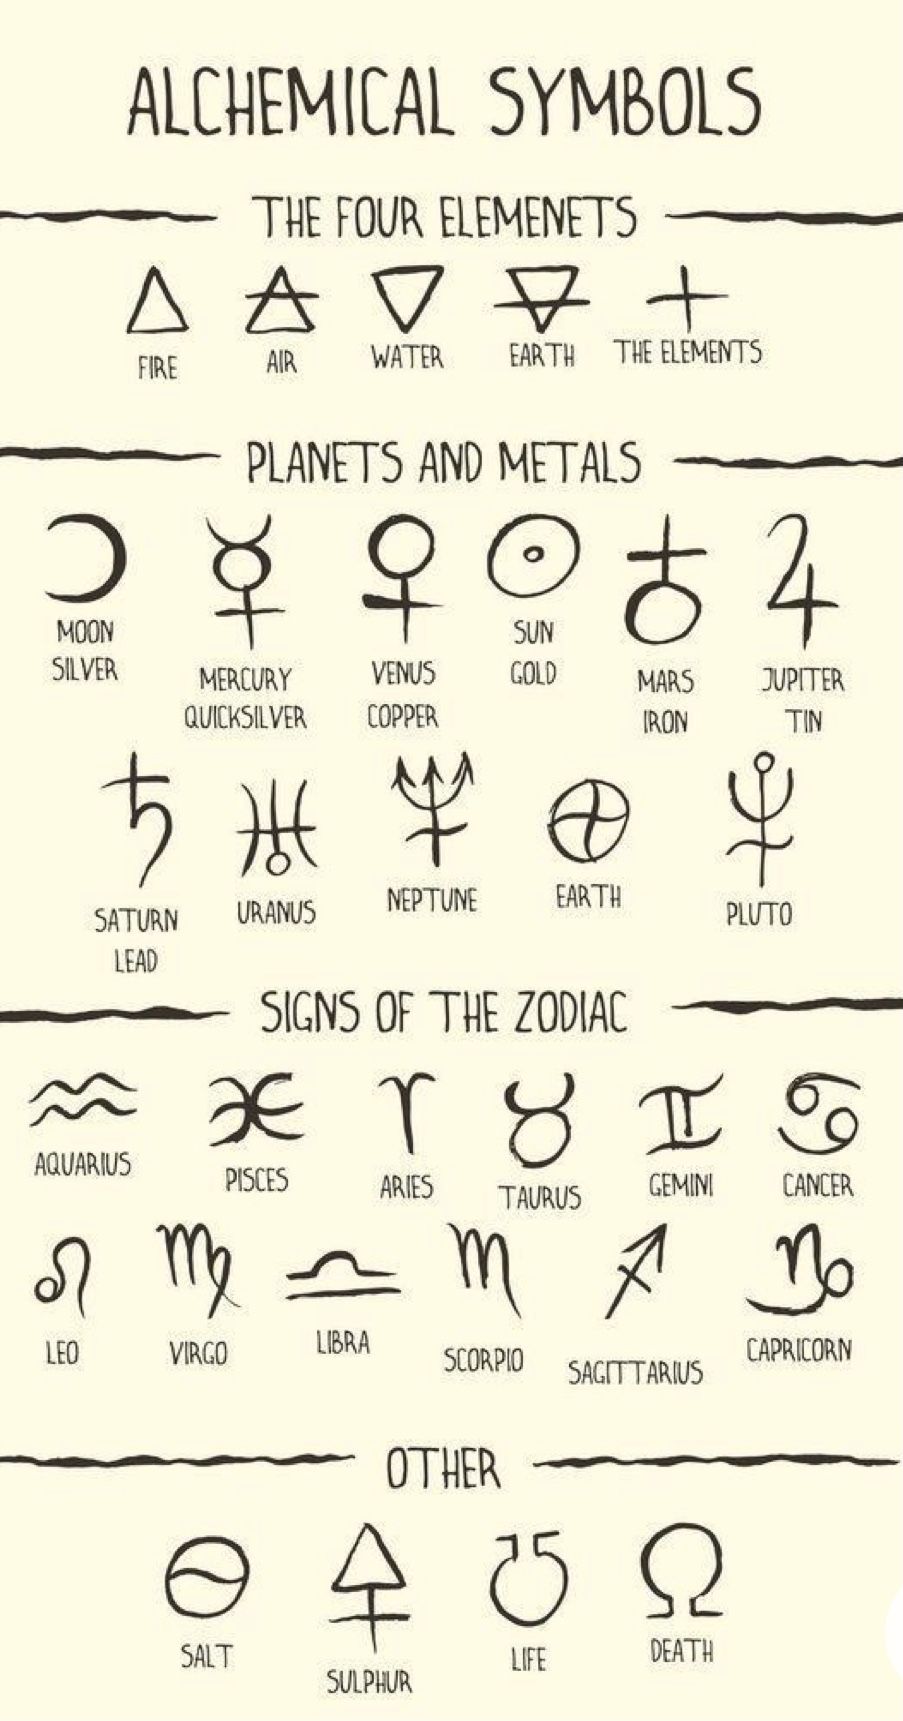 ALCHEMICAL SYMBOLS
THE FOUR ELEMENETS
FIRE AIR WATER EARTH THE ELEMENTS
PLANETS AND METALS
MOON
SILVER
MERCURY
QUICKSILVER
VENUS
COPPER
SUN
GOLD
MARS
IRON
JUPITER
TIN
SATURN
LEAD
URANUS
NEPTUNE
EARTH
PLUTO
SIGNS OF THE ZODIAC
AQUARIUS PISCES ARIES TAURUS GEMINI CANCER
LEO VIRGO LIBRA SCORPIO SAGITTARIUS CAPRICORN
OTHER
SALT SULPHUR LIFE DEATH